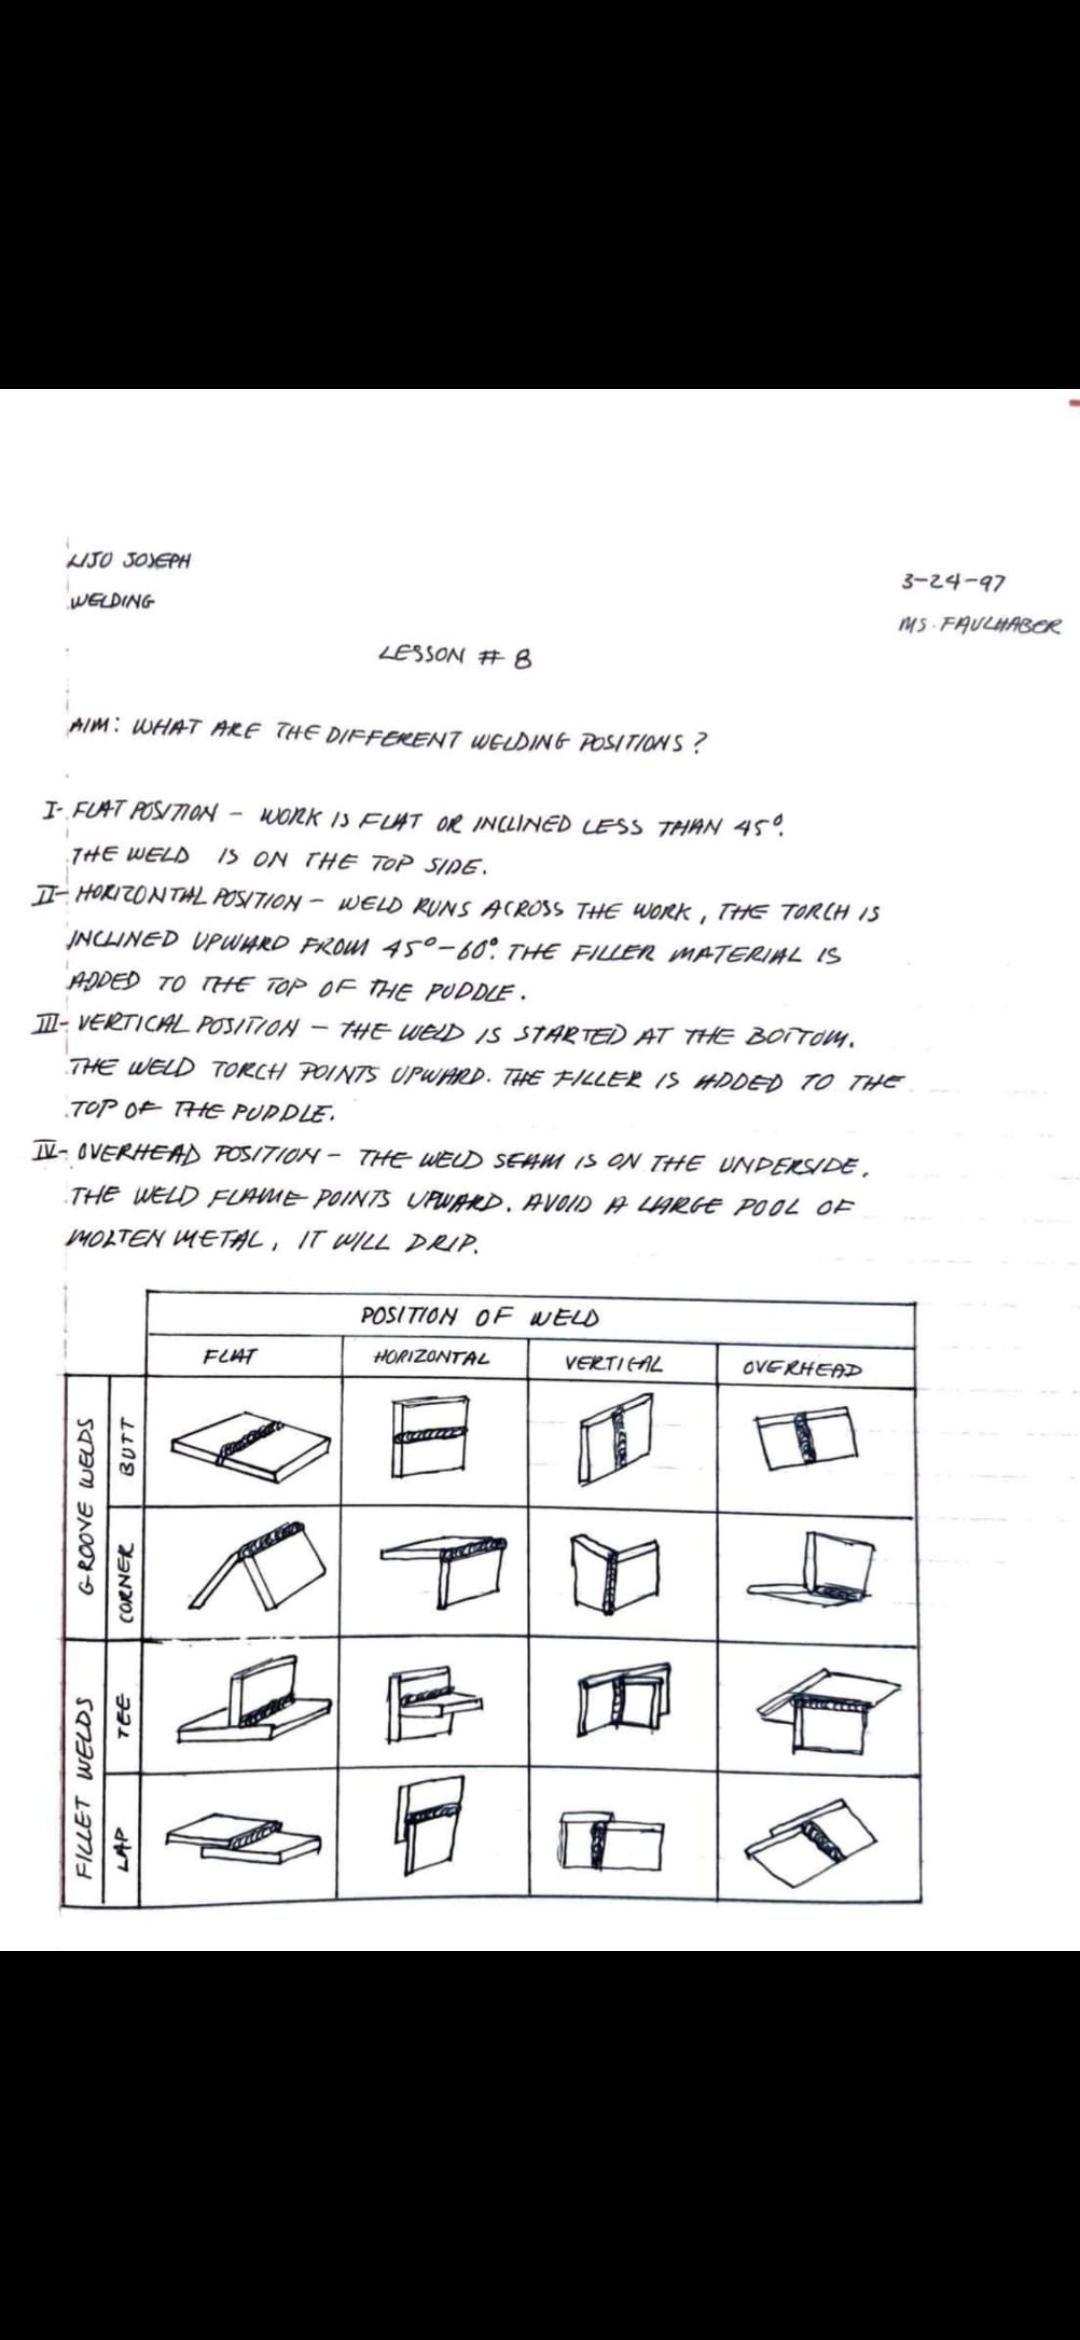 LIJO JOSEPH
3-24-97
WELDING
MS. FAULHABER
LESSON # 8
AIM: WHAT ARE THE DIFFERENT WELDING POSITIONS?
I- FLAT POSITION - WORK IS FLAT OR INCLINED LESS THAN 45°.
THE WELD IS ON THE TOP SIDE.
II- HORIZONTAL POSITION - WELD RUNS ACROSS THE WORK, THE TORCH IS
INCLINED UPWARD FROM 45°-60°. THE FILLER MATERIAL IS
ADDED TO THE TOP OF THE PUDDLE.
III- VERTICAL POSITION - THE WELD IS STARTED AT THE BOTTOM.
THE WELD TORCH POINTS UPWARD. THE FILLER IS ADDED TO THE
TOP OF THE PUDDLE.
IV- OVERHEAD POSITION - THE WELD SEAM IS ON THE UNDERSIDE.
THE WELD FLAME POINTS UPWARD. AVOID A LARGE POOL OF
MOLTEN METAL, IT WILL DRIP.
POSITION OF WELD
FLAT HORIZONTAL VERTICAL OVERHEAD
GROOVE WELDS
BUTT
CORNER
FILLET WELDS
TEE
LAP